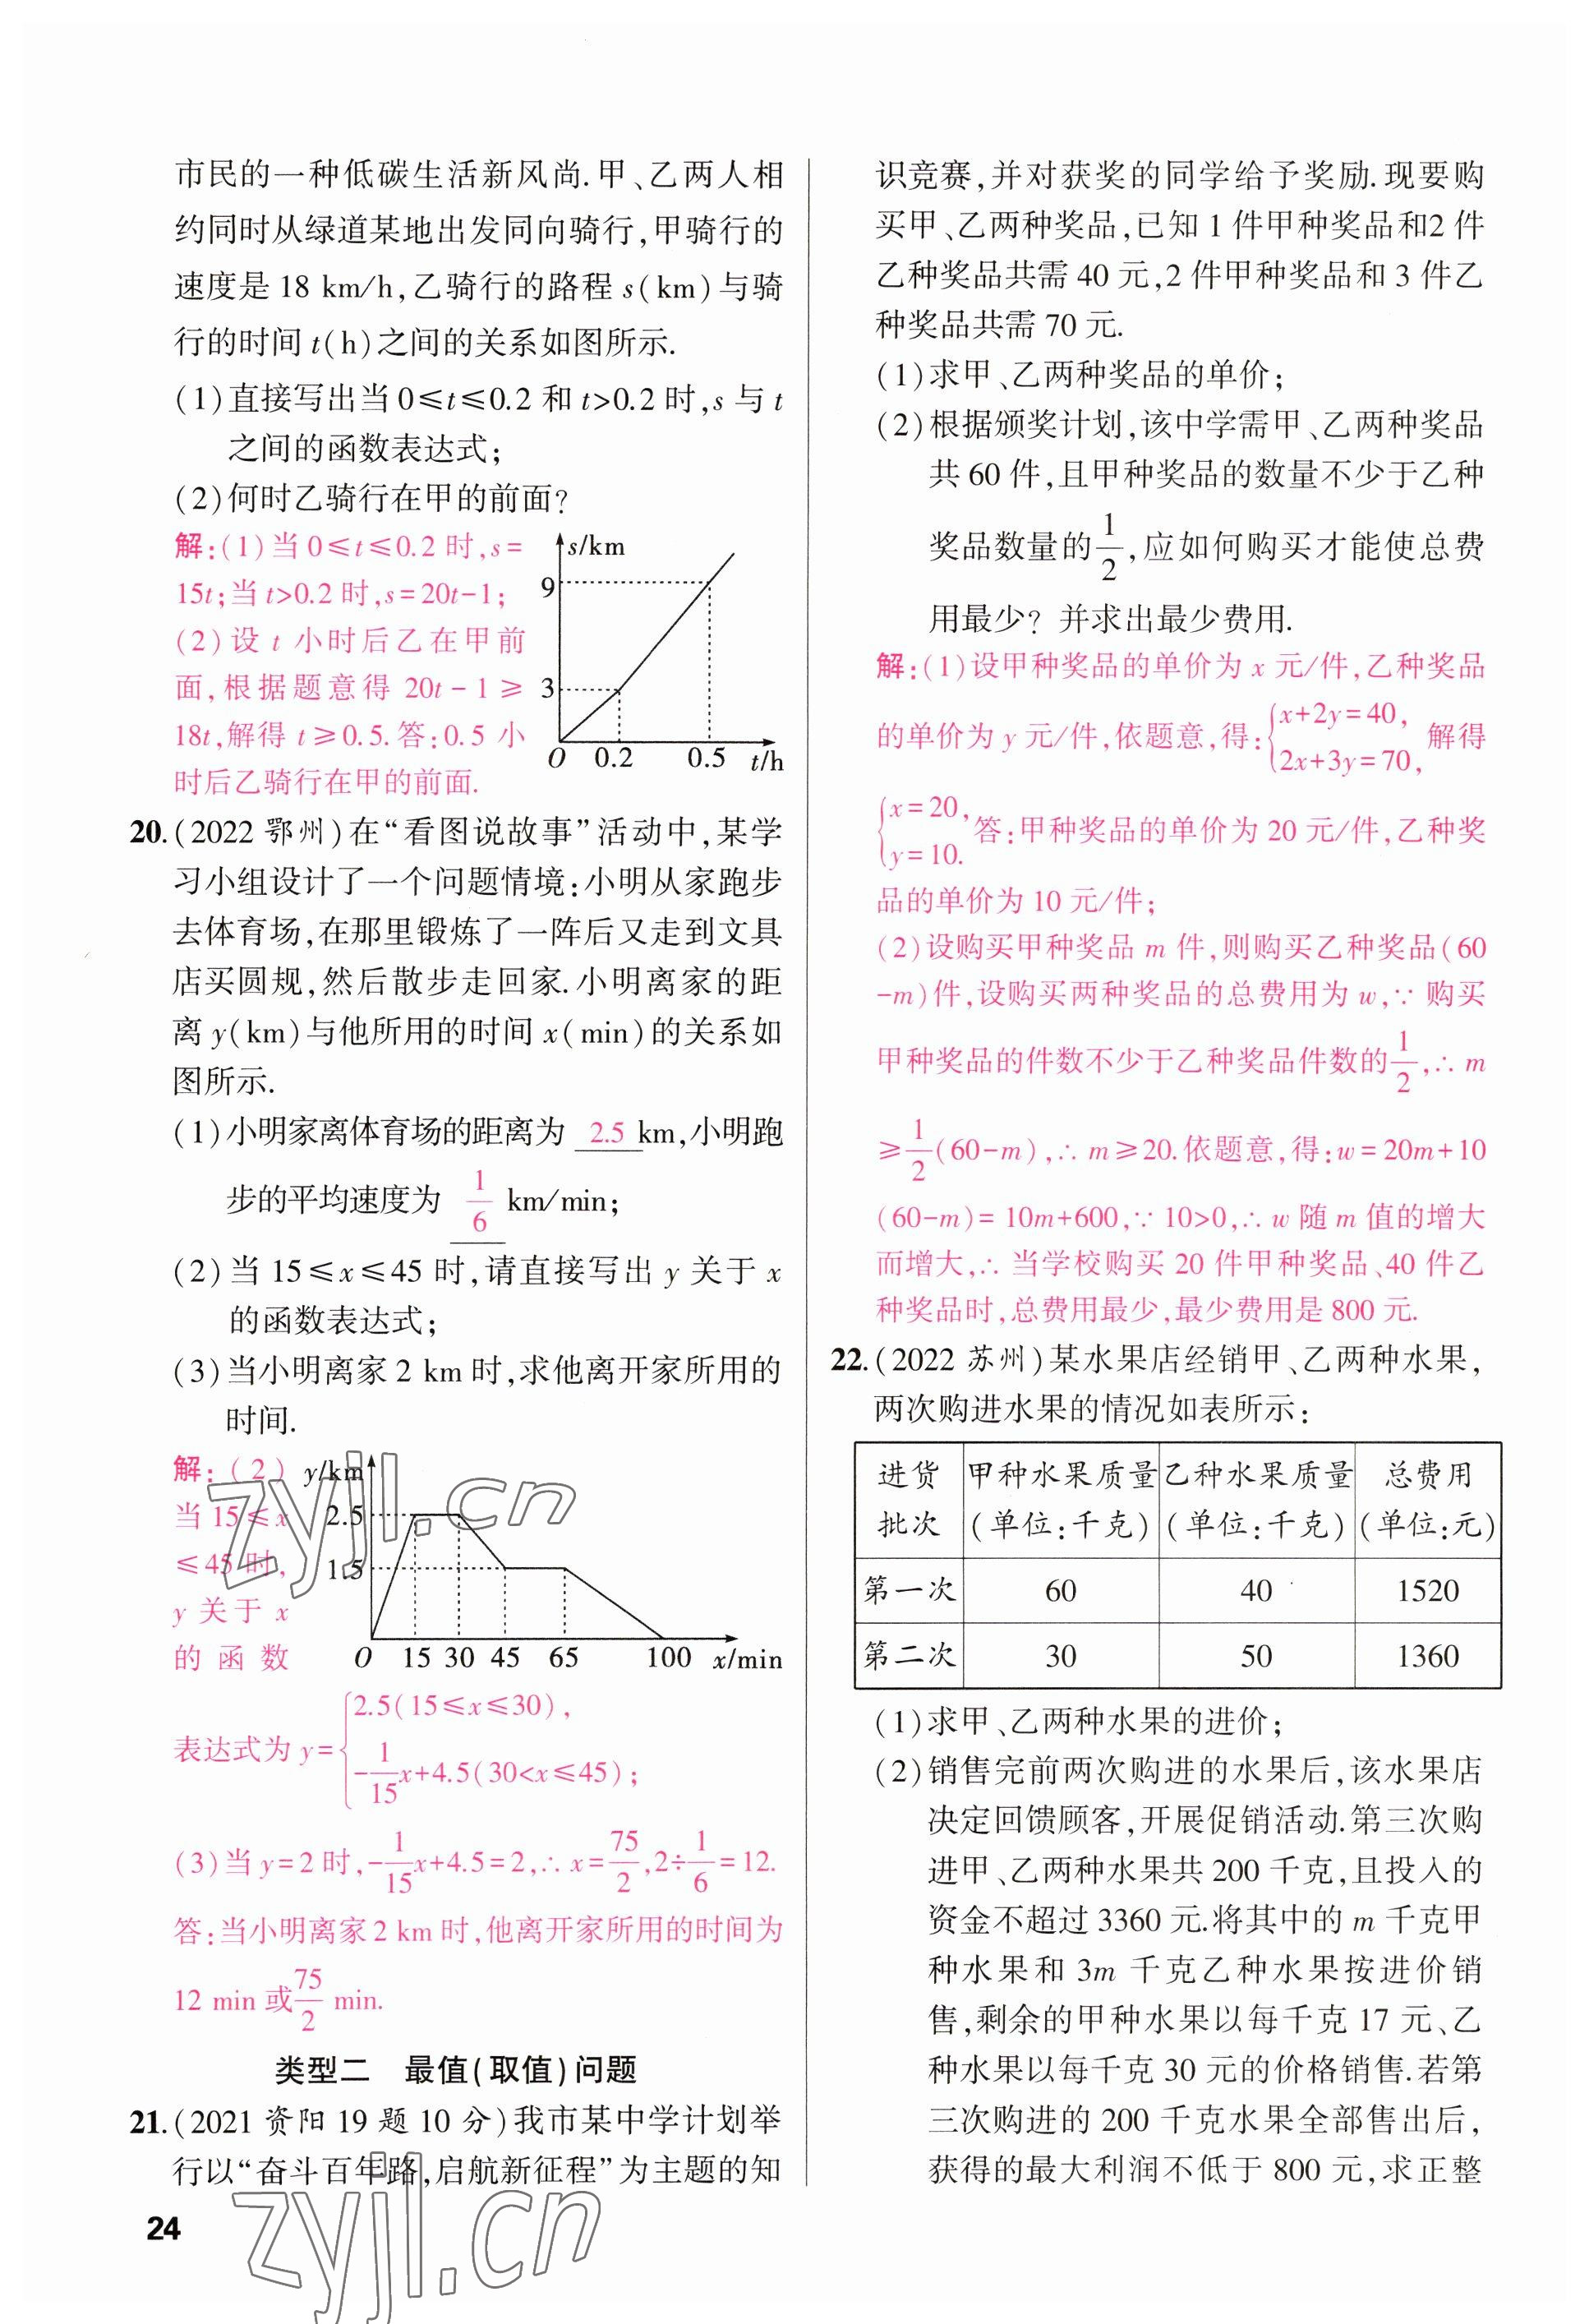 市民的一种低碳生活新风尚.甲、乙两人相
约同时从绿道某地出发同向骑行,甲骑行的
速度是 18 km/h,乙骑行的路程 s(km)与骑
行的时间 t(h)之间的关系如图所示.
(1)直接写出当 0≤t≤0.2 和 t>0.2 时,s 与 t
之间的函数表达式;
(2)何时乙骑行在甲的前面?
解:(1)当 0≤t≤0.2 时,s=
15t;当 t>0.2 时,s=20t-1;
(2)设 t 小时后乙在甲前
面,根据题意得 20t-1≥
18t,解得 t≥0.5.答:0.5 小
时后乙骑行在甲的前面.
s/km
9
3
O 0.2 0.5 t/h
20.(2022 鄂州)在“看图说故事”活动中,某学
习小组设计了一个问题情境:小明从家跑步
去体育场,在那里锻炼了一阵后又走到文具
店买圆规,然后散步走回家.小明离家的距
离 y(km)与他所用的时间 x(min)的关系如
图所示.
(1)小明家离体育场的距离为 2.5 km,小明跑
步的平均速度为 1/6 km/min;
(2)当 15≤x≤45 时,请直接写出 y 关于 x
的函数表达式;
(3)当小明离家 2 km 时,求他离开家所用的
时间.
解:(2)
当 15≤x
≤45 时,
y 关于 x
的 函 数
y/km
2.5
1.5
O 15 30 45 65 100 x/min
表达式为 y={2.5(15≤x≤30),
-1/15x+4.5(30<x≤45);
(3)当 y=2 时,-1/15x+4.5=2,∴ x=75/2,2÷1/6=12.
答:当小明离家 2 km 时,他离开家所用的时间为
12 min 或75/2 min.
类型二 最值(取值)问题
21.(2021 资阳 19 题 10 分)我市某中学计划举
行以“奋斗百年路,启航新征程”为主题的知
24
识竞赛,并对获奖的同学给予奖励.现要购
买甲、乙两种奖品,已知 1 件甲种奖品和2 件
乙种奖品共需 40 元,2 件甲种奖品和 3 件乙
种奖品共需 70 元.
(1)求甲、乙两种奖品的单价;
(2)根据颁奖计划,该中学需甲、乙两种奖品
共 60 件,且甲种奖品的数量不少于乙种
奖品数量的1/2,应如何购买才能使总费
用最少? 并求出最少费用.
解:(1)设甲种奖品的单价为 x 元/件,乙种奖品
的单价为 y 元/件,依题意,得:{x+2y=40, 2x+3y=70, 解得
{x=20, y=10. 答:甲种奖品的单价为 20 元/件,乙种奖
品的单价为 10 元/件;
(2)设购买甲种奖品 m 件,则购买乙种奖品(60
-m)件,设购买两种奖品的总费用为 w,∵ 购买
甲种奖品的件数不少于乙种奖品件数的1/2,∴ m
≥1/2(60-m),∴ m≥20.依题意,得:w=20m+10
(60-m)=10m+600,∵ 10>0,∴ w 随 m 值的增大
而增大,∴ 当学校购买 20 件甲种奖品、40 件乙
种奖品时,总费用最少,最少费用是 800 元.
22.(2022 苏州)某水果店经销甲、乙两种水果,
两次购进水果的情况如表所示:
进货批次 甲种水果质量(单位:千克) 乙种水果质量(单位:千克) 总费用(单位:元)
第一次 60 40 1520
第二次 30 50 1360
(1)求甲、乙两种水果的进价;
(2)销售完前两次购进的水果后,该水果店
决定回馈顾客,开展促销活动.第三次购
进甲、乙两种水果共 200 千克,且投入的
资金不超过 3360 元.将其中的 m 千克甲
种水果和 3m 千克乙种水果按进价销
售,剩余的甲种水果以每千克 17 元、乙
种水果以每千克 30 元的价格销售.若第
三次购进的 200 千克水果全部售出后,
获得的最大利润不低于 800 元,求正整
zyjl.cn
zyjl.cn